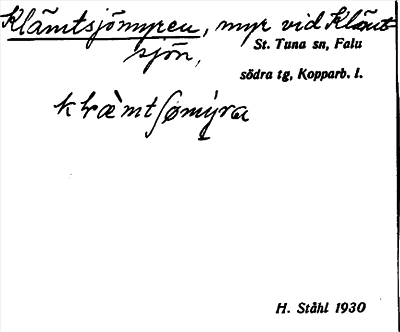 Klämtsjömyren, myr vid Klämt-
sjön,
St. Tuna sn, Falu
södra tg, Kopparb. l.
H. Ståhl 1930